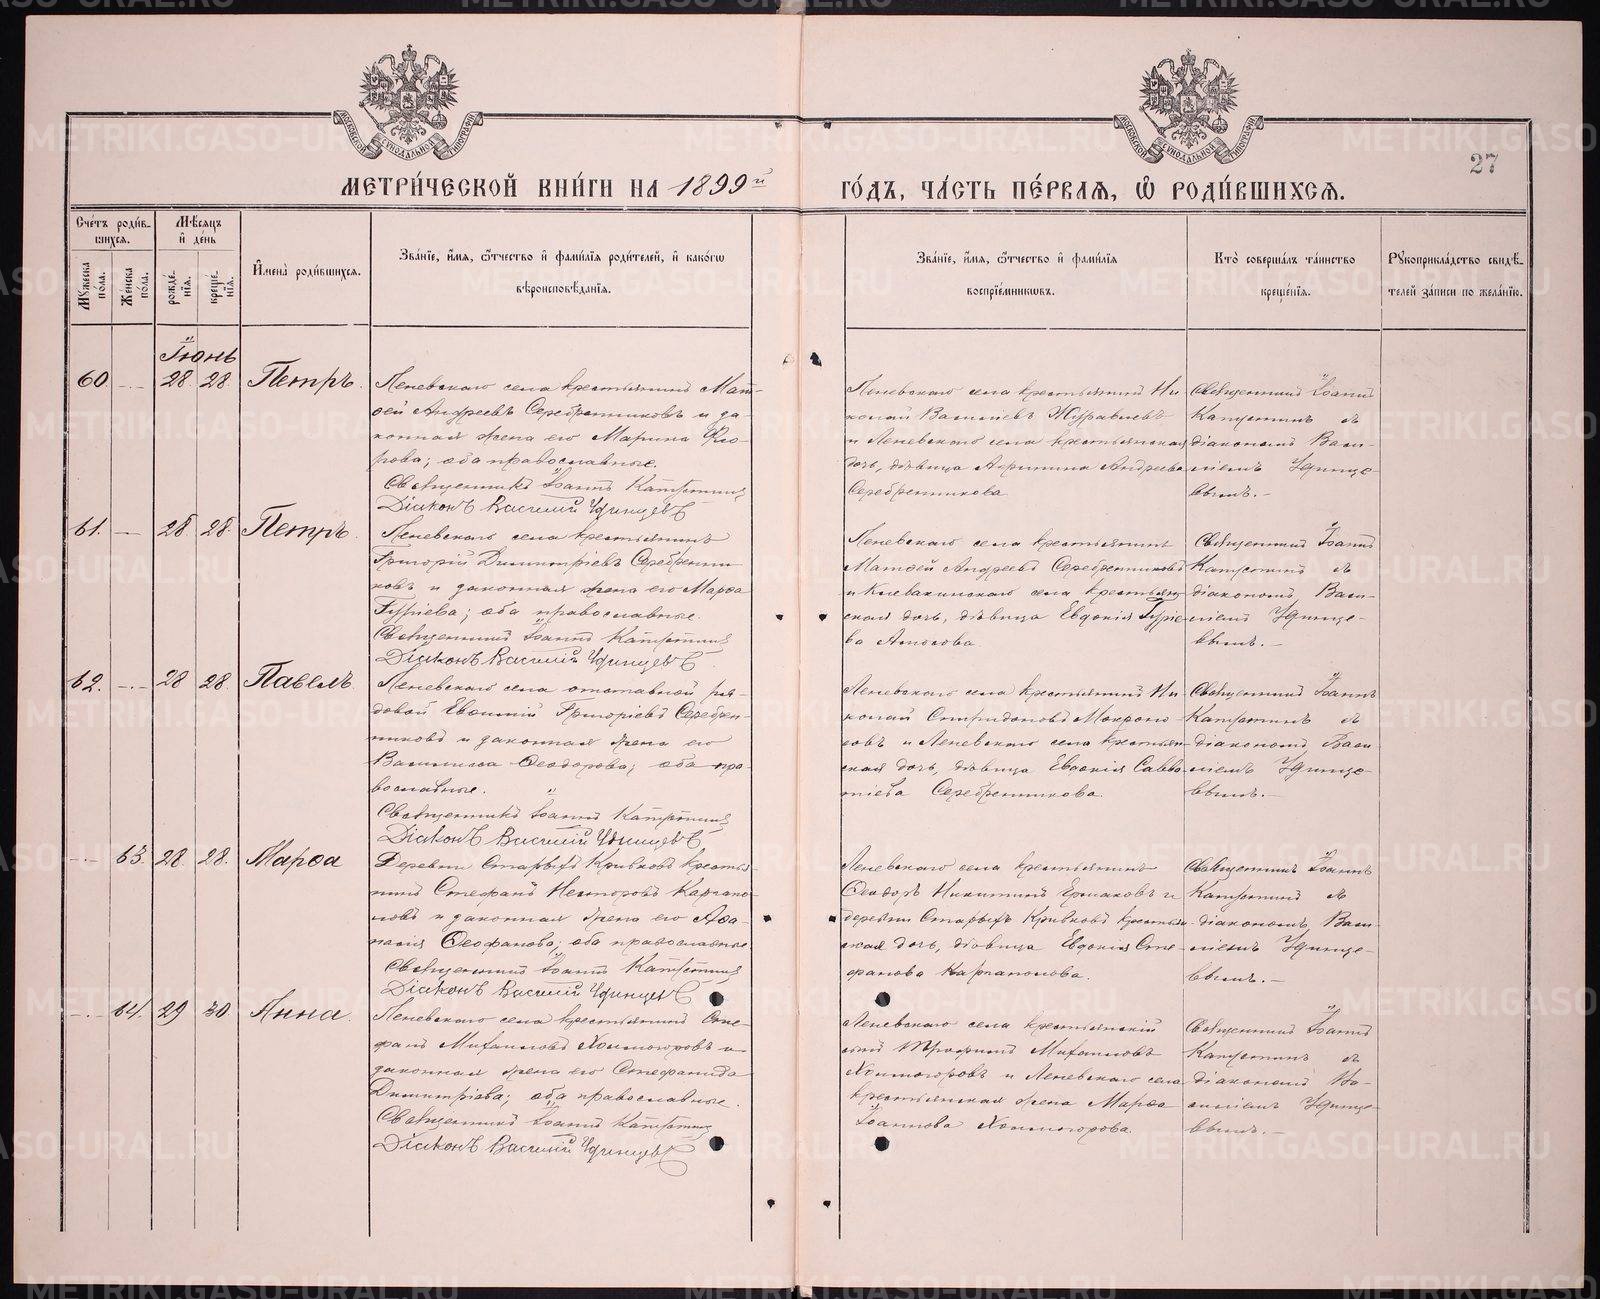 МЕТРИЧЕСКОЙ КНИГИ НА 1899й
ГОДЪ, ЧАСТЬ ПЕРВАЯ, Ѿ РОДИВШИХСЯ.
27
Счетъ родив-
шихся.
Мѣсяцъ
и день
Мужеска пола.
Женска пола.
рожденія.
крещенія.
Имена родившихся.
Званіе, имя, ѿчество и фамилія родителей, и какогѡ
вѣроисповѣданія.
Званіе, имя, ѿчество и фамилія
воспріемниковъ.
Кто совершалъ таинство
крещенія.
Рукоприкладство свидѣ-
телей записи по желанію.
Іюнь
60 28 28 Петръ.
Леневскаго села крестьянинъ Мат-
ѳей Андреевъ Серебренниковъ и за-
конная жена его Марина Фло-
рова; оба православные.
Священникъ Іоаннъ Капустинъ
Діаконъ Василій Удинцевъ
Леневскаго села крестьянинъ Ни-
колай Васильевъ Журавлевъ
и Леневскаго села крестьянская
дочь, дѣвица Андреева
Серебренникова
Священникъ Іоаннъ
Капустинъ съ
діакономъ Васи-
ліемъ Удинце-
вымъ.-
61. 28 28. Петръ.
Леневскаго села крестьянинъ
Григорій Димитріевъ Серебренни-
ковъ и законная жена его Марѳа
Гуріева; оба православные.
Священникъ Іоаннъ Капустинъ
Діаконъ Василій Удинцевъ
Леневскаго села крестьянинъ
Матѳей Андреевъ Серебренниковъ
и Клевакинскаго села крестьян-
ская дочь, дѣвица Евдокія Гуріе-
ва
Священникъ Іоаннъ
Капустинъ съ
діакономъ Васи-
ліемъ Удинце-
вымъ.-
62. 28 28. Павелъ.
Леневскаго села отставной ря-
довой Евѳимій Григоріевъ Серебрен-
никовъ и законная жена его
Василисса Ѳеодорова; оба пра-
вославные.
Священникъ Іоаннъ Капустинъ
Діаконъ Василій Удинцевъ
Леневскаго села крестьянинъ Ни-
колай Спиридоновъ Мокроно-
совъ и Леневскаго села крестьян-
ская дочь, дѣвица Евдокія Савва-
тіева Серебренникова.
Священникъ Іоаннъ
Капустинъ съ
діакономъ Васи-
ліемъ Удинце-
вымъ.-
63. 28. 28. Марѳа
Деревни Старыхъ Кривковъ крестья-
нинъ Стефанъ Несторовъ Каргапо-
ловъ и законная жена его Аѳа-
насія Ѳеофанова; оба православные.
Священникъ Іоаннъ Капустинъ
Діаконъ Василій Удинцевъ
Леневскаго села крестьянинъ
Ѳеодоръ Никитинъ Ермаковъ и
деревни Старыхъ Кривковъ крестьян-
ская дочь, дѣвица Евдокія Сте-
фанова Каргаполова.
Священникъ Іоаннъ
Капустинъ съ
діакономъ Васи-
ліемъ Удинце-
вымъ.-
64. 29 30 Анна.
Леневскаго села крестьянинъ Сте-
фанъ Михаиловъ Холмогоровъ и
законная жена его Стефанида
Димитріева; оба православные.
Священникъ Іоаннъ Капустинъ
Діаконъ Василій Удинцевъ
Леневскаго села крестьянскій
сынъ Трофимъ Михаиловъ
Холмогоровъ и Леневскаго села
крестьянская жена Марѳа
Іоаннова Холмогорова.
Священникъ Іоаннъ
Капустинъ съ
діакономъ Ва-
силіемъ Удинце-
вымъ.-
METRIKI.GASO-URAL.RU